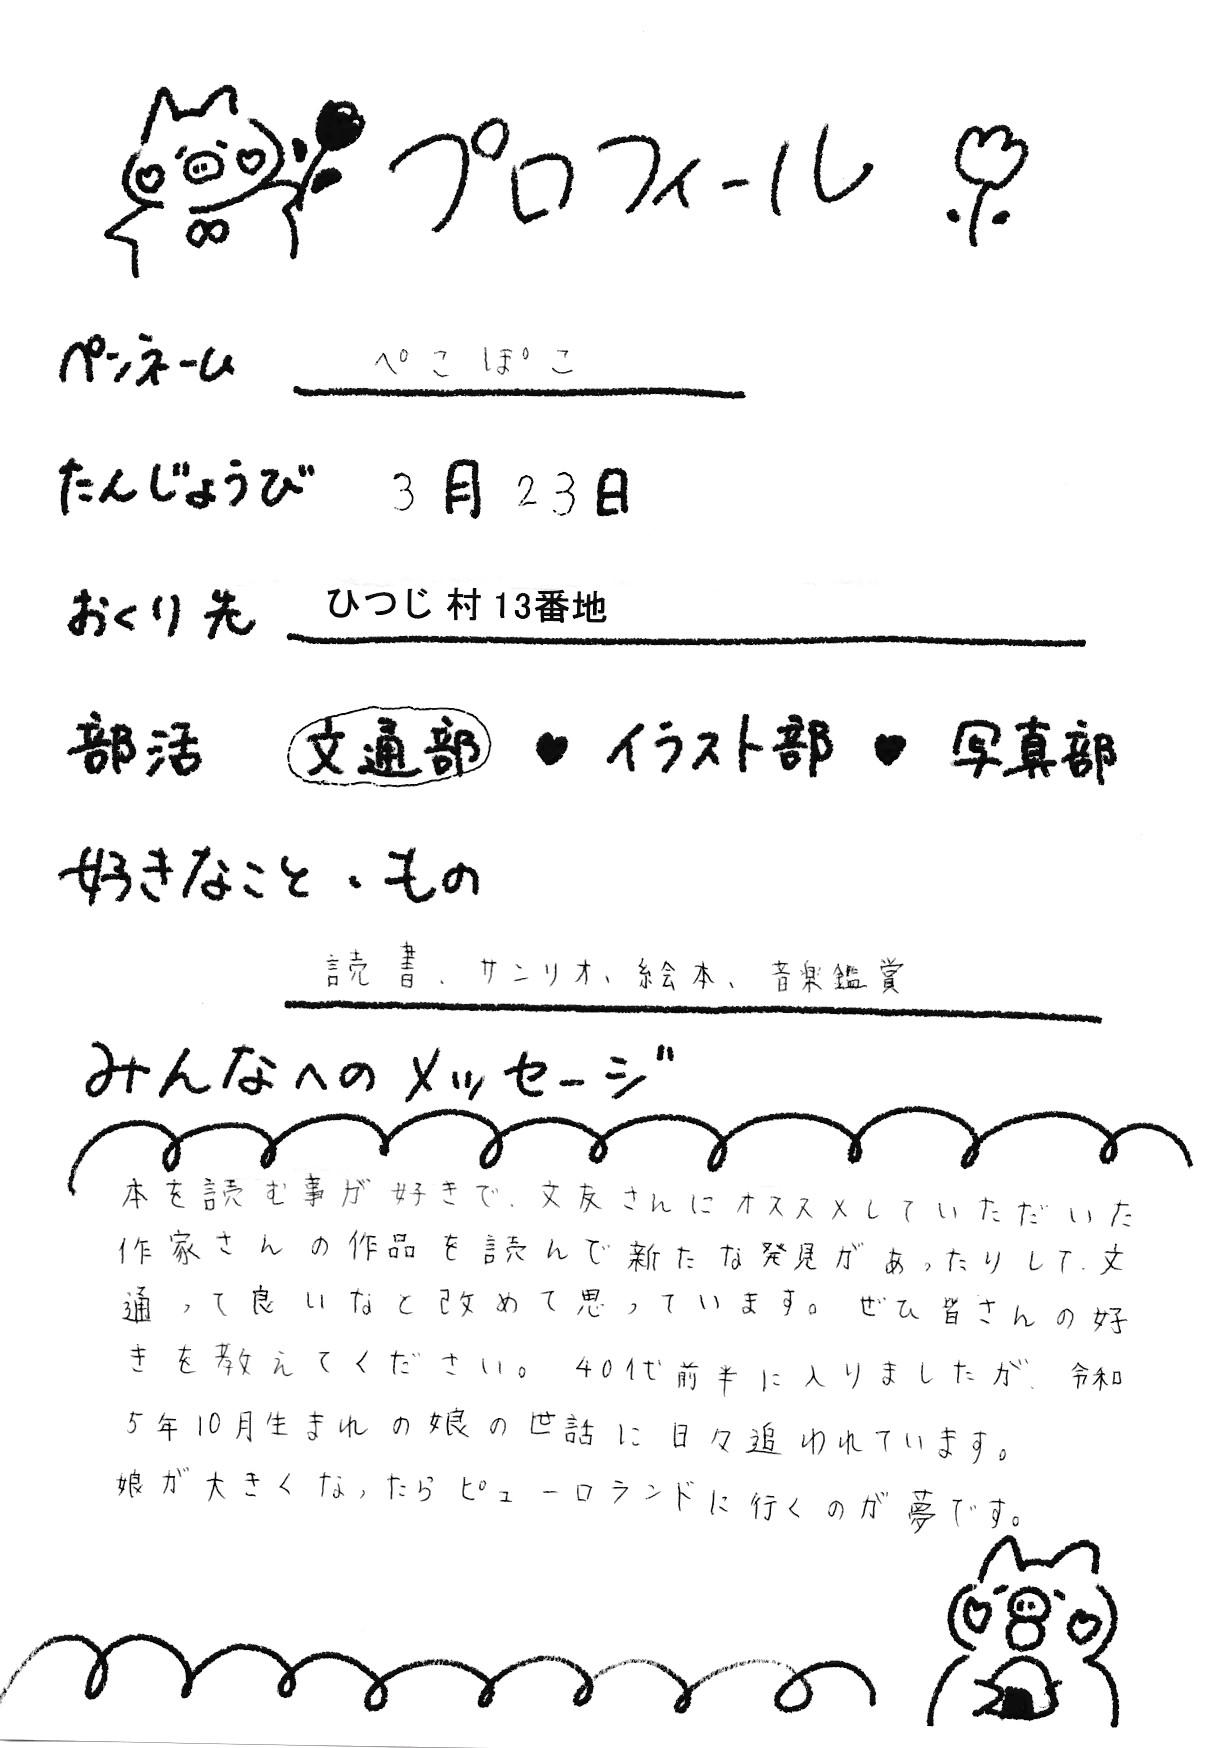 プロフィール
ペンネーム ぺこぽこ
たんじょうび 3月23日
おくり先 ひつじ村13番地
部活 文通部 ♥ イラスト部 ♥ 写真部
好きなこと・もの
読書、サンリオ、絵本、音楽鑑賞
みんなへのメッセージ
本を読む事が好きで、文友さんにオススメしていただいた
作家さんの作品を読んで新たな発見があったりして、文
通って良いなと改めて思っています。ぜひ皆さんの好
きを教えてください。40代前半に入りましたが、令和
5年10月生まれの娘の世話に日々追われています。
娘が大きくなったらピューロランドに行くのが夢です。